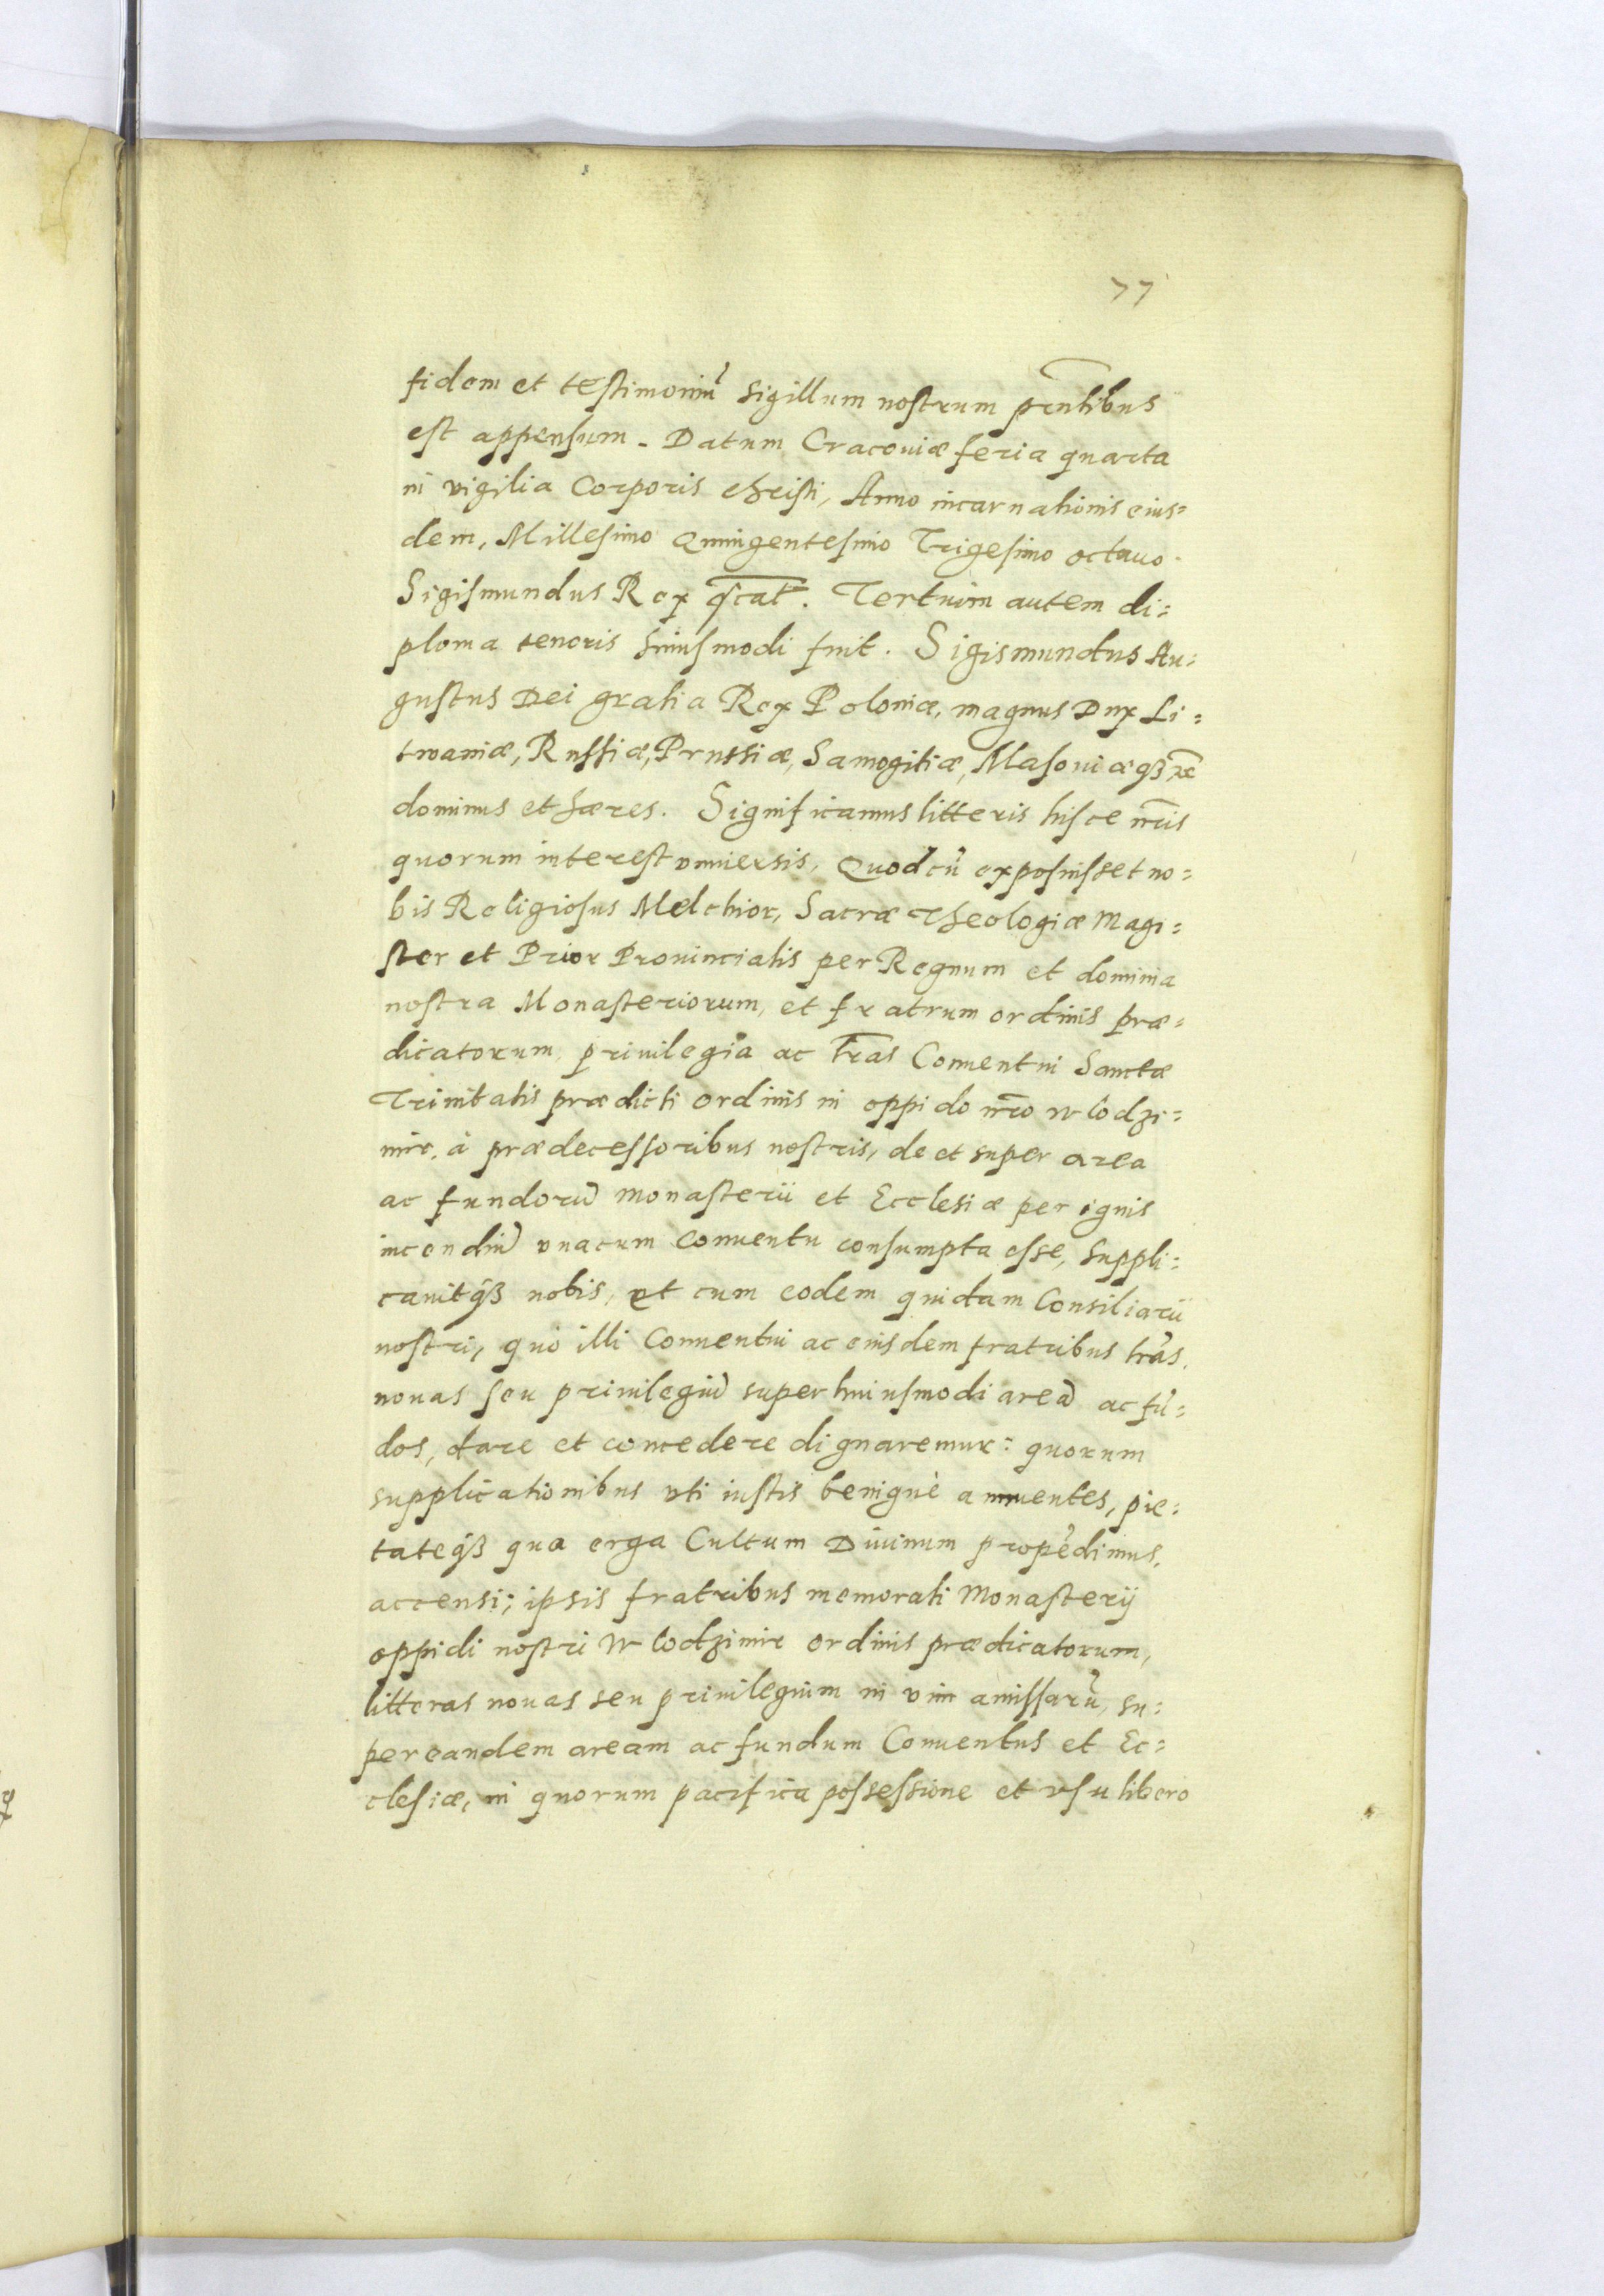 77
fidem et testimoniũ sigillum nostrum pr̃ntibus
est appensum. Datum Cracouiæ feria quarta
in vigilia Corporis christi, Anno incarnationis eius=
dem, Millesimo Quingentesimo Trigesimo octauo.
Sigismundus Rex Tertium autem di=
ploma tenoris huiusmodi fuit. Sigismundus Au=
gustus Dei gratia Rex Poloniæ, magnus Dux Li=
twaniæ, Russiæ, Prussiæ, Samogitiæ, Masouiæqȝ
dominus et hæres. Significamus litteris hisce nr̃is
quorum interest vniuersis, Quod cũ exposuisset no=
bis Religiosus Melchior, Sacræ Theologiæ Magi=
ster et Prior Prouincialis per Regnum et dominia
nostra Monasteriorum, et fratrum ordinis præ=
dicatorum, priuilegia ac lr̃as Conuentui Sanctæ
Trinitatis prædicti ordinis in oppido nr̃o Wlodzi=
mir, à prædecessoribus nostris, de et super area
ac fundorũ monasterii et Ecclesiæ per ignis
incendiũ vnacum conuentu consumpta esse, suppli=
cauitqȝ nobis, et cum eodem quidam Consiliarii
nostri, quò illi Conuentui ac eiusdem fratribus lr̃as
nouas seu priuilegiũ super huiusmodi areã ac fũ=
dos, dare et concedere dignaremur: quorum
supplicationibus vti iustis benignè annuentes, pie=
tateqȝ qua erga Cultum Diuinum propẽdimus,
accensi; ipsis fratribus memorati Monasterij
oppidi nostri Wlodzimir ordinis prædicatorum,
litteras nouas seu priuilegium in vim amissarũ, su=
per eandem aream ac fundum Conuentus et Ec=
clesiæ, in quorum pacifica possessione et vsu libero